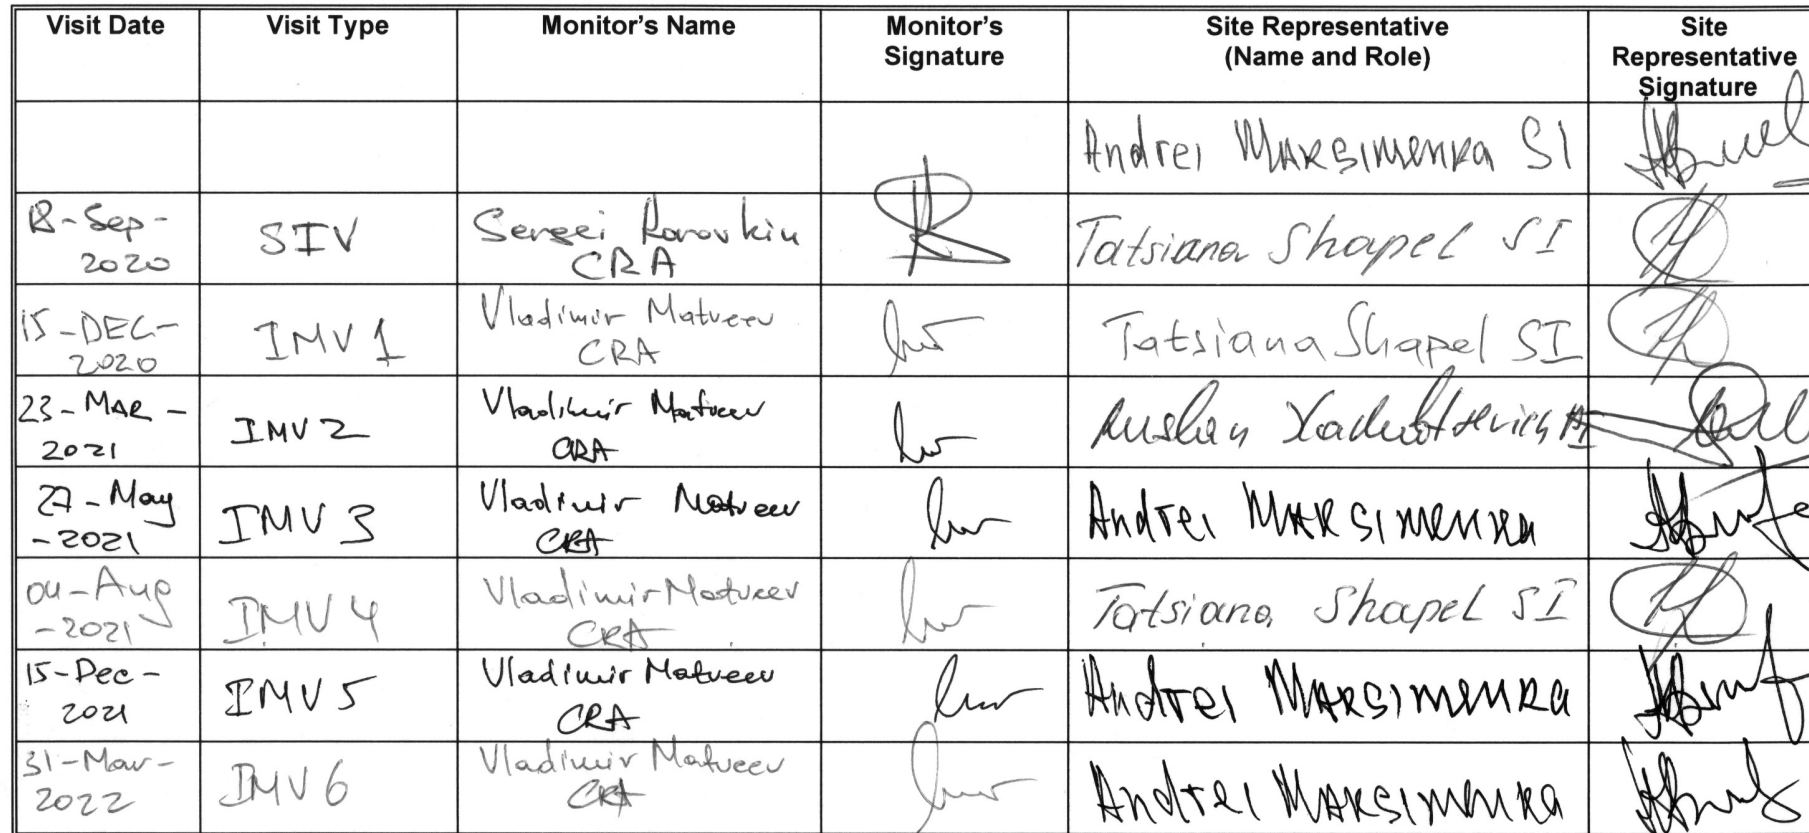 Visit Date Visit Type Monitor's Name Monitor's Signature Site Representative (Name and Role) Site Representative Signature
Andrei Maksimenka SI
18-Sep-2020 SIV Sergei CRA Tatsiana Shapel SI
15-DEC-2020 IMV 1 Vladimir Matveev CRA Tatsiana Shapel SI
23-MAR-2021 IMV 2 Vladimir Matveev CRA Ruslan
27-May-2021 IMV 3 Vladimir Matveev CRA Andrei Maksimenka
04-Aug-2021 IMV 4 Vladimir Matveev CRA Tatsiana Shapel SI
15-Dec-2021 IMV 5 Vladimir Matveev CRA Andrei Maksimenka
31-Mar-2022 IMV 6 Vladimir Matveev CRA Andrei Maksimenka